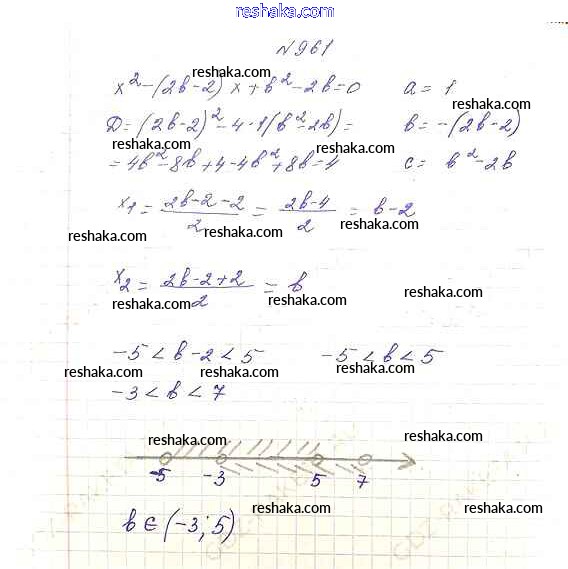 reshaka.com
№961
reshaka.com
x² - (2b-2) x + b² - 2b = 0 a = 1
reshaka.com
D = (2b-2)² - 4·1(b² - 2b) = b = -(2b-2)
reshaka.com
= 4b² - 8b + 4 - 4b² + 8b = 4 c = b² - 2b
reshaka.com reshaka.com
x₁ = (2b-2-2)/2 = (2b-4)/2 = b-2
reshaka.com reshaka.com reshaka.com
x₂ = (2b-2+2)/2 = b
reshaka.com reshaka.com reshaka.com
-5 < b-2 < 5 -5 < b < 5
reshaka.com reshaka.com reshaka.com
-3 < b < 7
reshaka.com reshaka.com
-5 -3 5 7
b ∈ (-3; 5)
reshaka.com reshaka.com